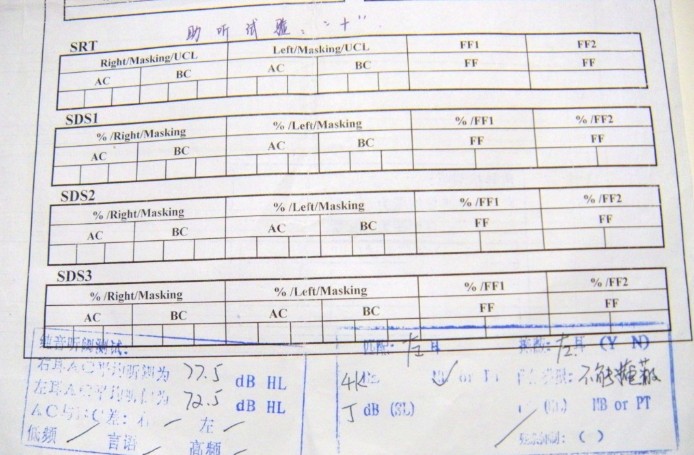 助听试验:"+".
SRT
Right/Masking/UCL Left/Masking/UCL FF1 FF2
AC BC AC BC FF FF
SDS1
% /Right/Masking % /Left/Masking % /FF1 % /FF2
AC BC AC BC FF FF
SDS2
% /Right/Masking % /Left/Masking % /FF1 % /FF2
AC BC AC BC FF FF
SDS3
% /Right/Masking % /Left/Masking % /FF1 % /FF2
AC BC AC BC FF FF
纯音听阈测试:
右耳AC平均听阈为 77.5 dB HL
左耳AC平均听阈为 72.5 dB HL
AC与BC差: 右 左
低频 言语 高频
匹配: 左耳
4K or PT
dB (SL)
左耳 (Y N)
不能掩蔽
NB or PT
( )